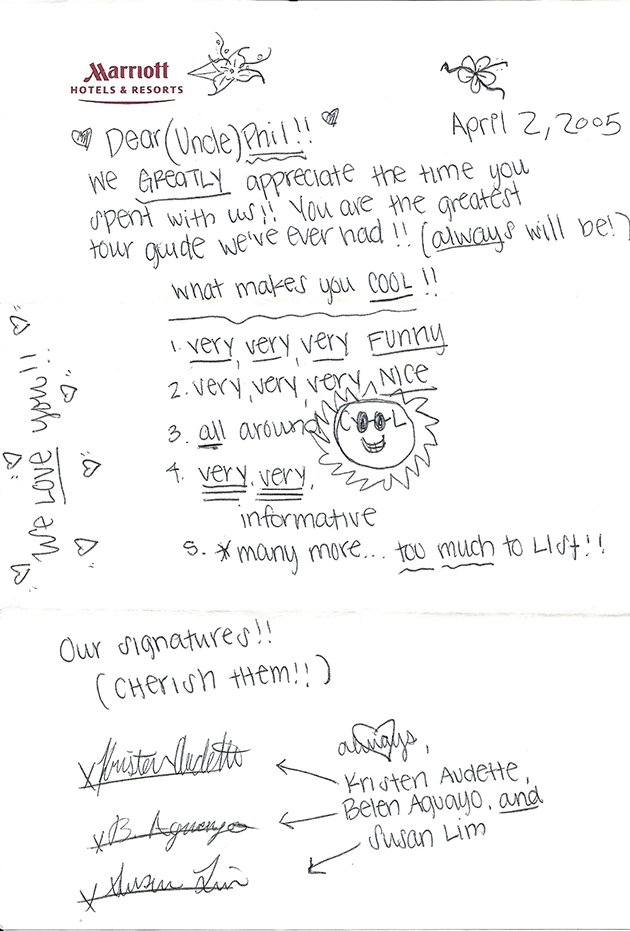 Marriott
HOTELS & RESORTS
April 2, 2005
Dear (Uncle) Phil!!
We GREATLY appreciate the time you
spent with us!! You are the greatest
tour guide we've ever had!! (always will be!)
what makes you COOL!!
1. very, very, very FUNNY
2. very, very, very NICE
3. all around COOL
4. very, very,
informative
5. *many more... too much to LIST!!
We LOVE you!!
Our signatures!!
(CHERISH THEM!!)
always,
Kristen Audette,
Belen Aguayo, and
Susan Lim
X Kristen Audette
X B. Aguayo
X Susan Lim